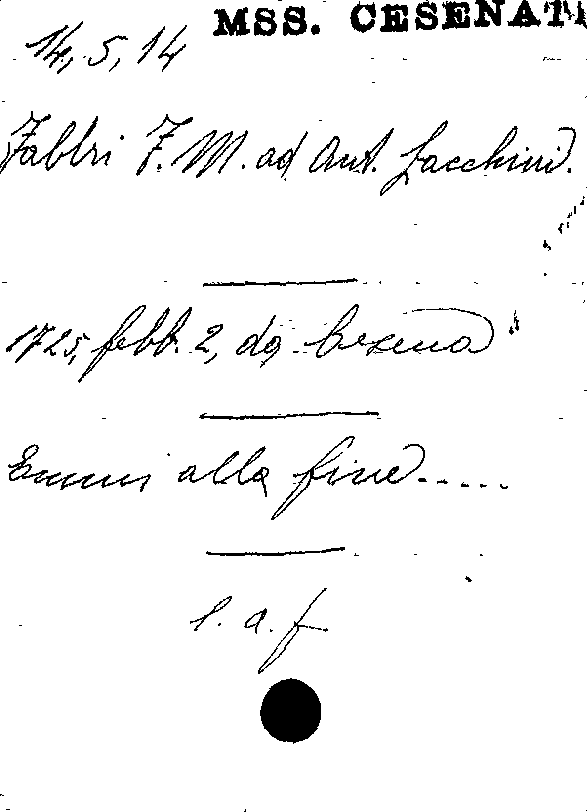 MSS. CESENATI
14, 5, 14
Fabbri F. M. ad Ant. Zacchini.
1725, febb. 2, da Cesena
Emmi alla fine.....
l. a. f.